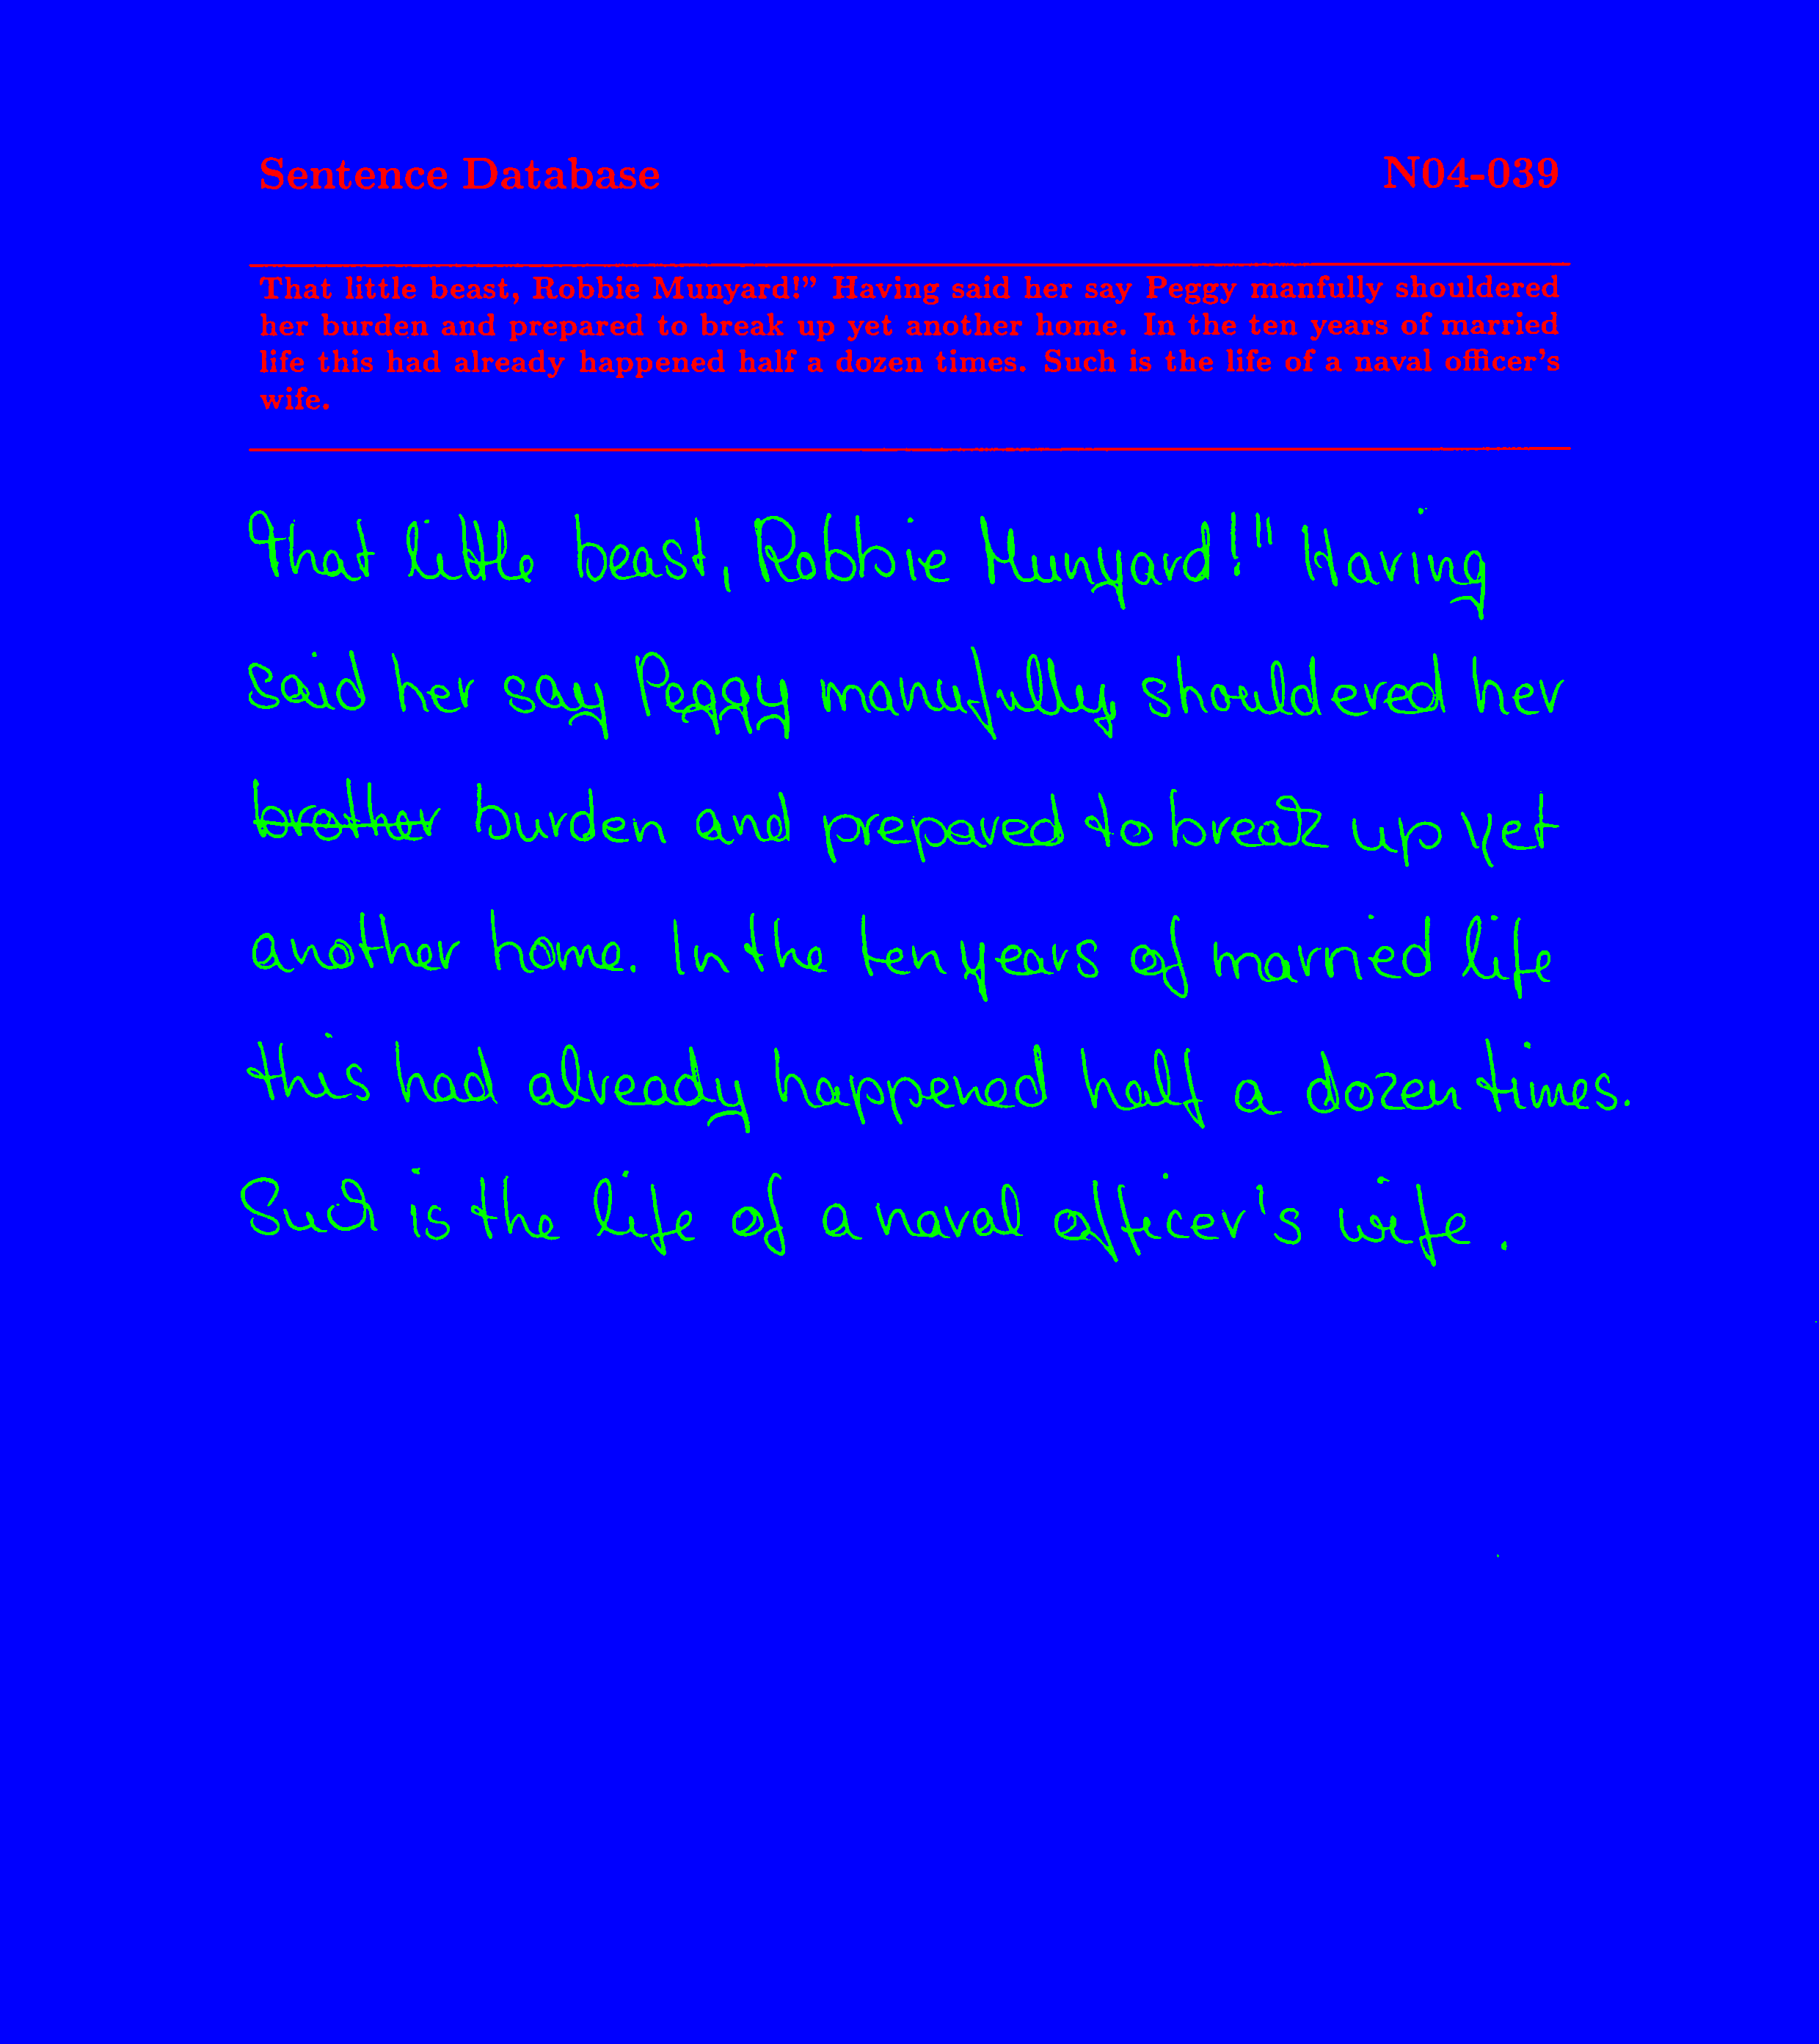 Sentence Database N04-039
That little beast, Robbie Munyard!” Having said her say Peggy manfully shouldered
her burden and prepared to break up yet another home. In the ten years of married
life this had already happened half a dozen times. Such is the life of a naval officer’s
wife.
That little beast, Robbie Munyard!" Having
said her say Peggy manfully shouldered her
brother burden and prepared to break up yet
another home. In the ten years of married life
this had already happened half a dozen times.
Such is the life of a naval officer's wife.